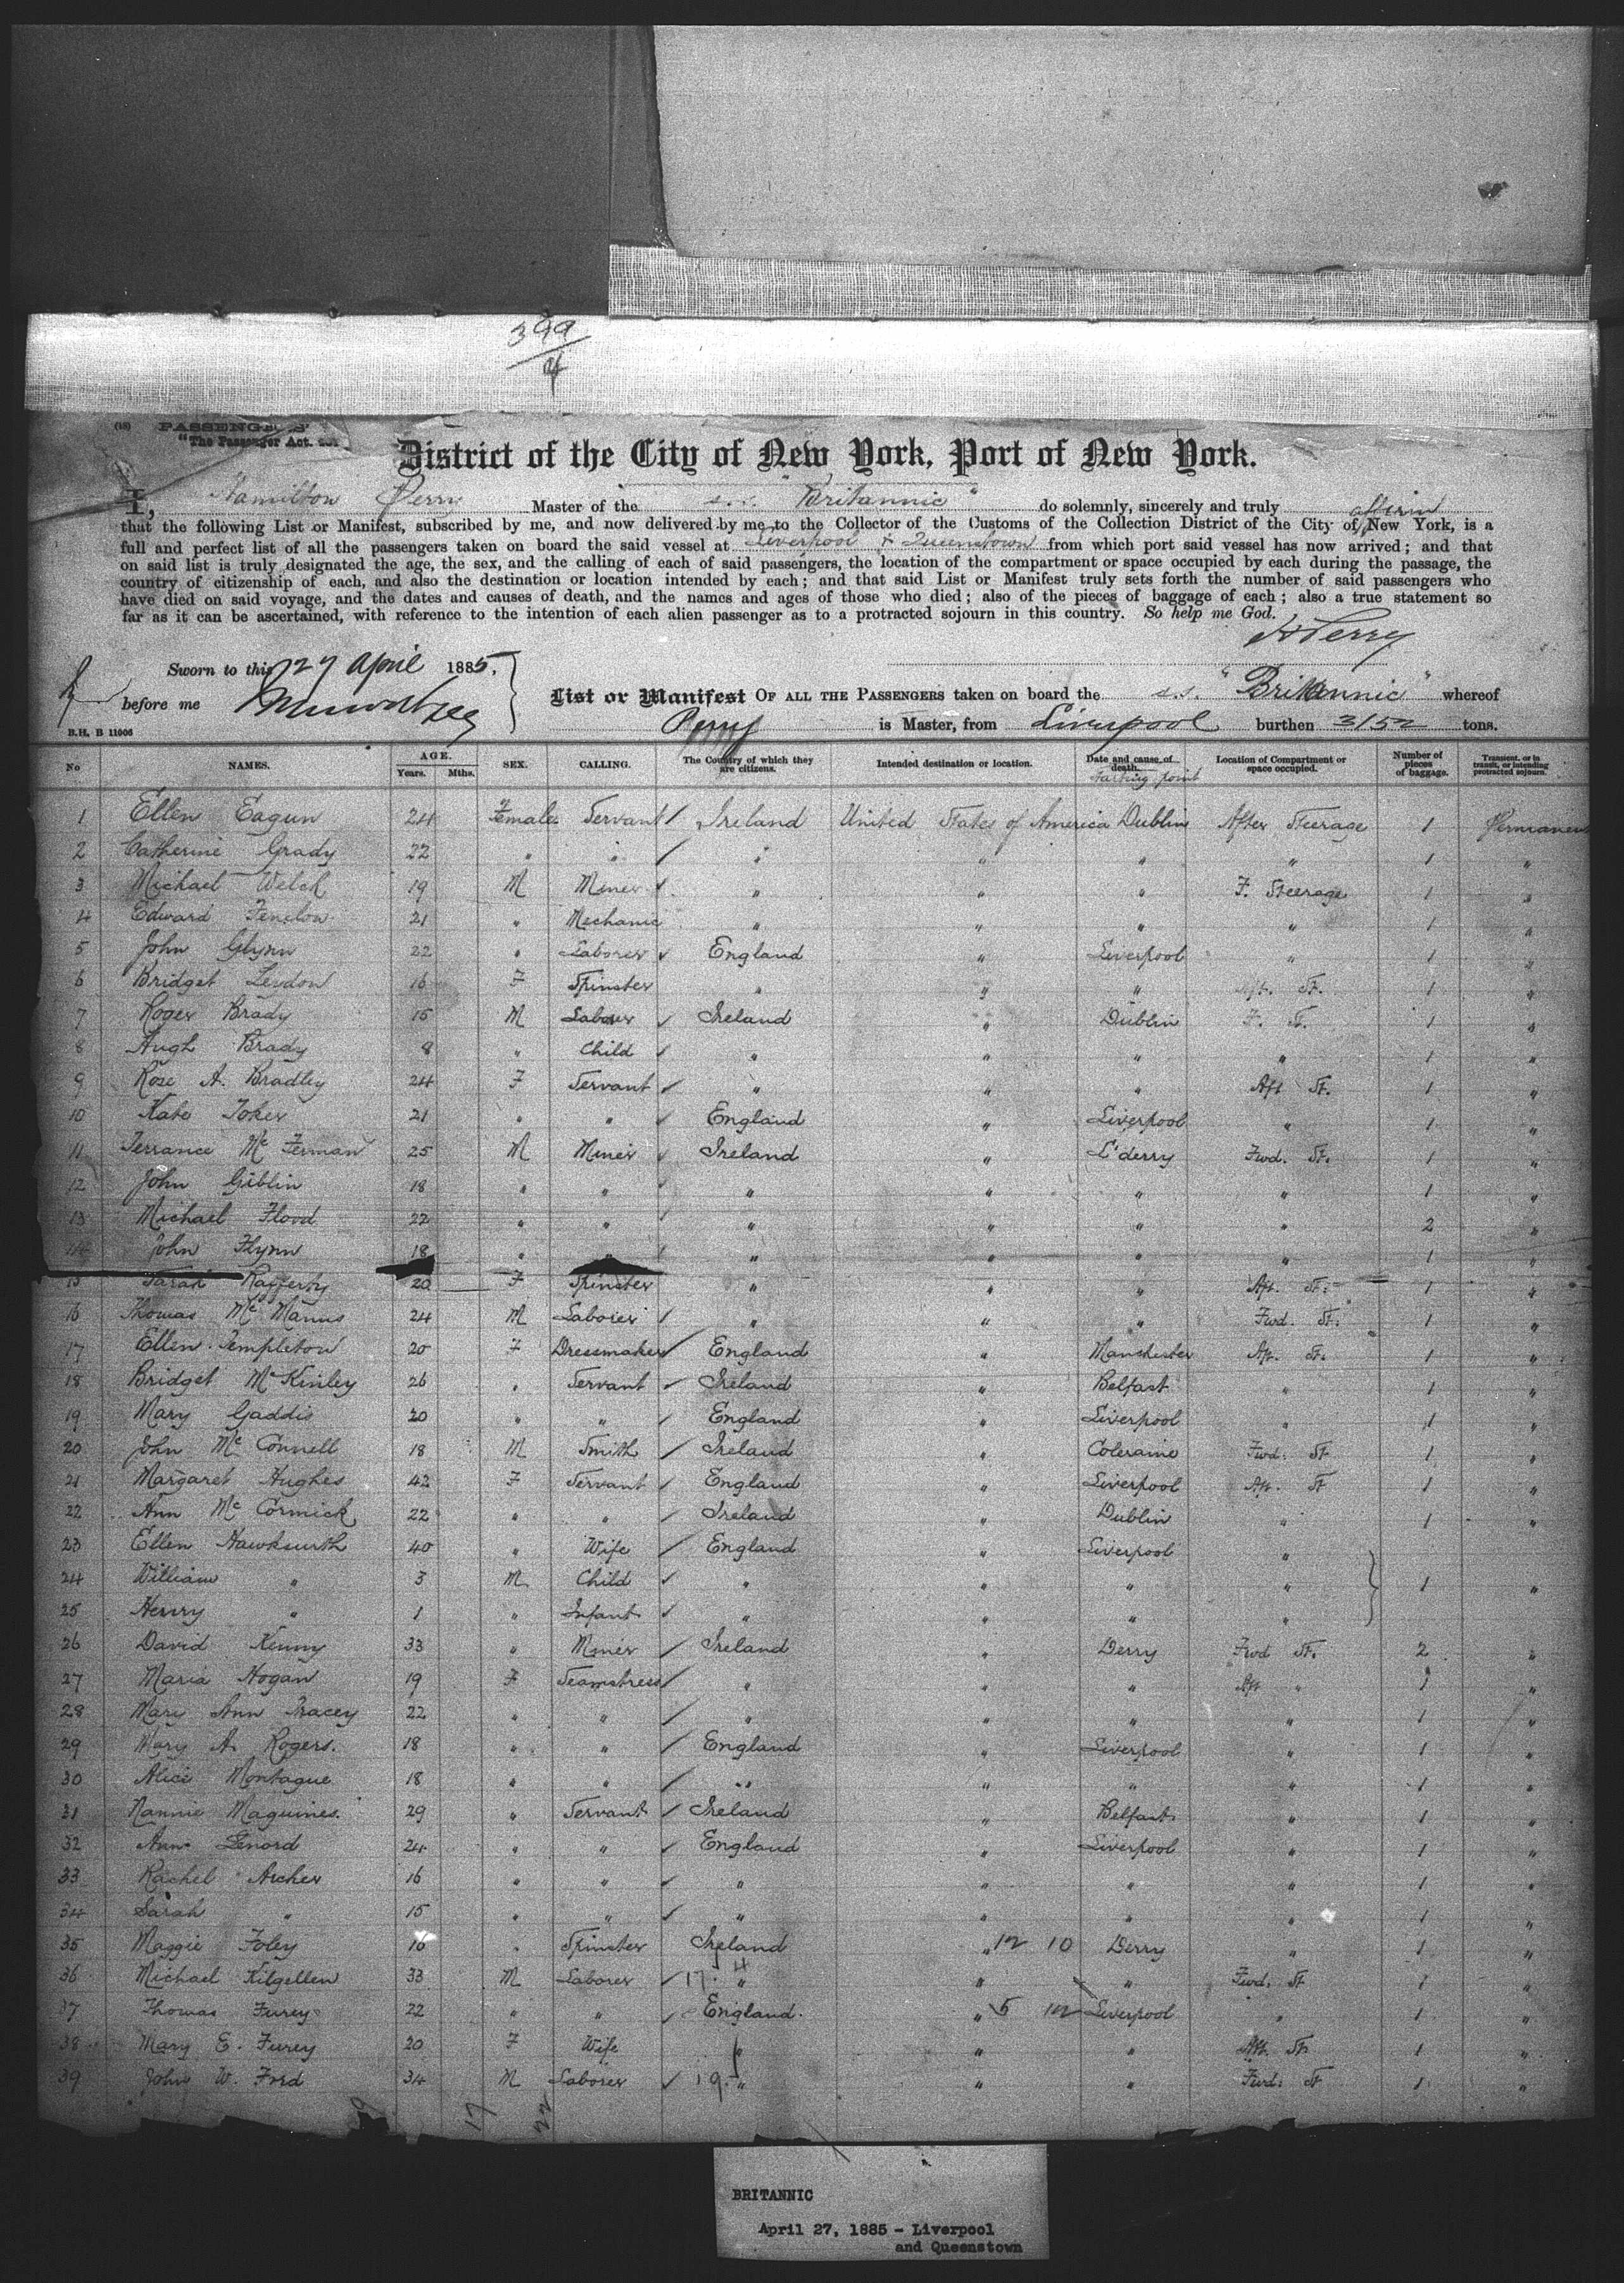 399
4
(18) PASSENGERS'
"The Passenger Act.
District of the City of New York, Port of New York.
I, Hamilton Perry Master of the s.s. "Britannic" do solemnly, sincerely and truly affirm
that the following List or Manifest, subscribed by me, and now delivered by me to the Collector of the Customs of the Collection District of the City of New York, is a
full and perfect list of all the passengers taken on board the said vessel at Liverpool & Queenstown from which port said vessel has now arrived; and that
on said list is truly designated the age, the sex, and the calling of each of said passengers, the location of the compartment or space occupied by each during the passage, the
country of citizenship of each, and also the destination or location intended by each; and that said List or Manifest truly sets forth the number of said passengers who
have died on said voyage, and the dates and causes of death, and the names and ages of those who died; also of the pieces of baggage of each; also a true statement so
far as it can be ascertained, with reference to the intention of each alien passenger as to a protracted sojourn in this country. So help me God.
H Perry
Sworn to this 27 April 1885,
before me
List or Manifest OF ALL THE PASSENGERS taken on board the s.s. "Britannic" whereof
Perry is Master, from Liverpool burthen 3152 tons.
B.H. B 11006
No NAMES. AGE. Years. Mths. SEX. CALLING. The Country of which they are citizens. Intended destination or location. Date and cause of death. Starting point Location of Compartment or space occupied. Number of pieces of baggage. Transient, or in transit, or intending protracted sojourn.
1 Ellen Eagun 24 Female Servant / Ireland United States of America Dublin After Steerage 1 Permanent
2 Catherine Grady 22 " " / " " " " 1 "
3 Michael Welch 19 M Miner / " " " F. Steerage 1 "
4 Edward Fenelow 21 " Mechanic " " " " 1 "
5 John Glynn 22 " Laborer / England " Liverpool " 1 "
6 Bridget Leydon 16 F Spinster " " " Aft. St. 1 "
7 Roger Brady 15 M Laborer / Ireland " Dublin F. St. 1 "
8 Hugh Brady 8 " Child / " " " " 1 "
9 Rose A. Bradley 24 F Servant / " " " Aft St. 1 "
10 Kate Toker 21 " " / England " Liverpool " 1 "
11 Terrance Mc Ferman 25 M Miner / Ireland " L'derry Fwd. St. 1 "
12 John Giblin 18 " " / " " " " 1 "
13 Michael Flood 22 " " / " " " " 2 "
14 John Flynn 18 " " / " " " " 1 "
15 Sarah Rafferty 20 F Spinster " " " Aft. St. 1 "
16 Thomas Mc Manus 24 M Laborer / " " " Fwd. St. 1 "
17 Ellen Templeton 20 F Dressmaker / England " Manchester Aft. St. 1 "
18 Bridget McKinley 26 " Servant / Ireland " Belfast " 1 "
19 Mary Gaddis 20 " " / England " Liverpool " 1 "
20 John Mc Connell 18 M Smith / Ireland " Coleraine Fwd. St 1 "
21 Margaret Hughes 42 F Servant / England " Liverpool Aft. St 1 "
22 Ann Mc Cormick 22 " " / Ireland " Dublin " 1 "
23 Ellen Hawksurth 40 " Wife / England " Liverpool "
24 William " 3 M Child / " " " " 1 "
25 Henry " 1 " Infant / " " " "
26 David Kenny 33 " Miner / Ireland " Derry Fwd St. 2 "
27 Maria Hogan 19 F Seamstress / " " " Aft " 1 "
28 Mary Ann Tracey 22 " " / " " " " 1 "
29 Mary A. Rogers. 18 " " / England " Liverpool " 1 "
30 Alice Montague 18 " " / " " " " 1 "
31 Nannie Maguines. 29 " Servant / Ireland " Belfast " 1 "
32 Ann Lenord 24 " " / England " Liverpool " 1 "
33 Rachel Archer 16 " " / " " " " 1 "
34 Sarah " 15 " " / " " " " 1 "
35 Maggie Foley 16 " Spinster Ireland " 12 10 Derry " 1 "
36 Michael Kilgellen 33 M Laborer / 17. 4 " " " Fwd. St 1 "
37 Thomas Furey 22 " " / England. " 5 12 Liverpool " 1 "
38 Mary E. Furey 20 F Wife " " " Aft. St. 1 "
39 John W. Ford 34 M Laborer / 19. " " " Fwd. St 1 "
17 22
BRITANNIC
April 27, 1885 - Liverpool
and Queenstown